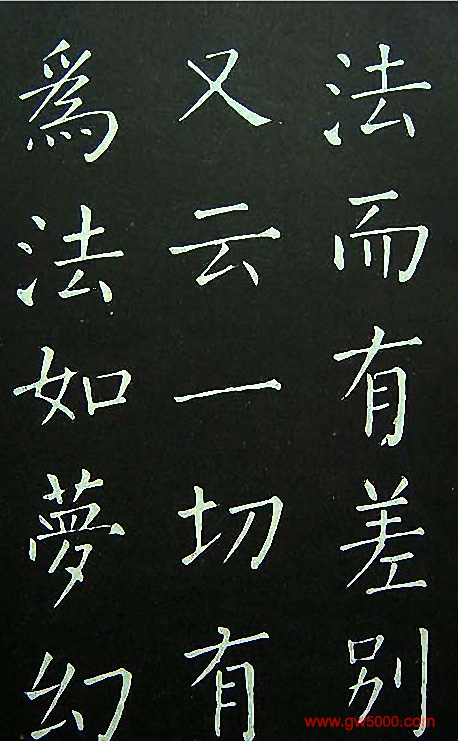 法而有差别
又云一切有
為法如夢幻
www.gw5000.com